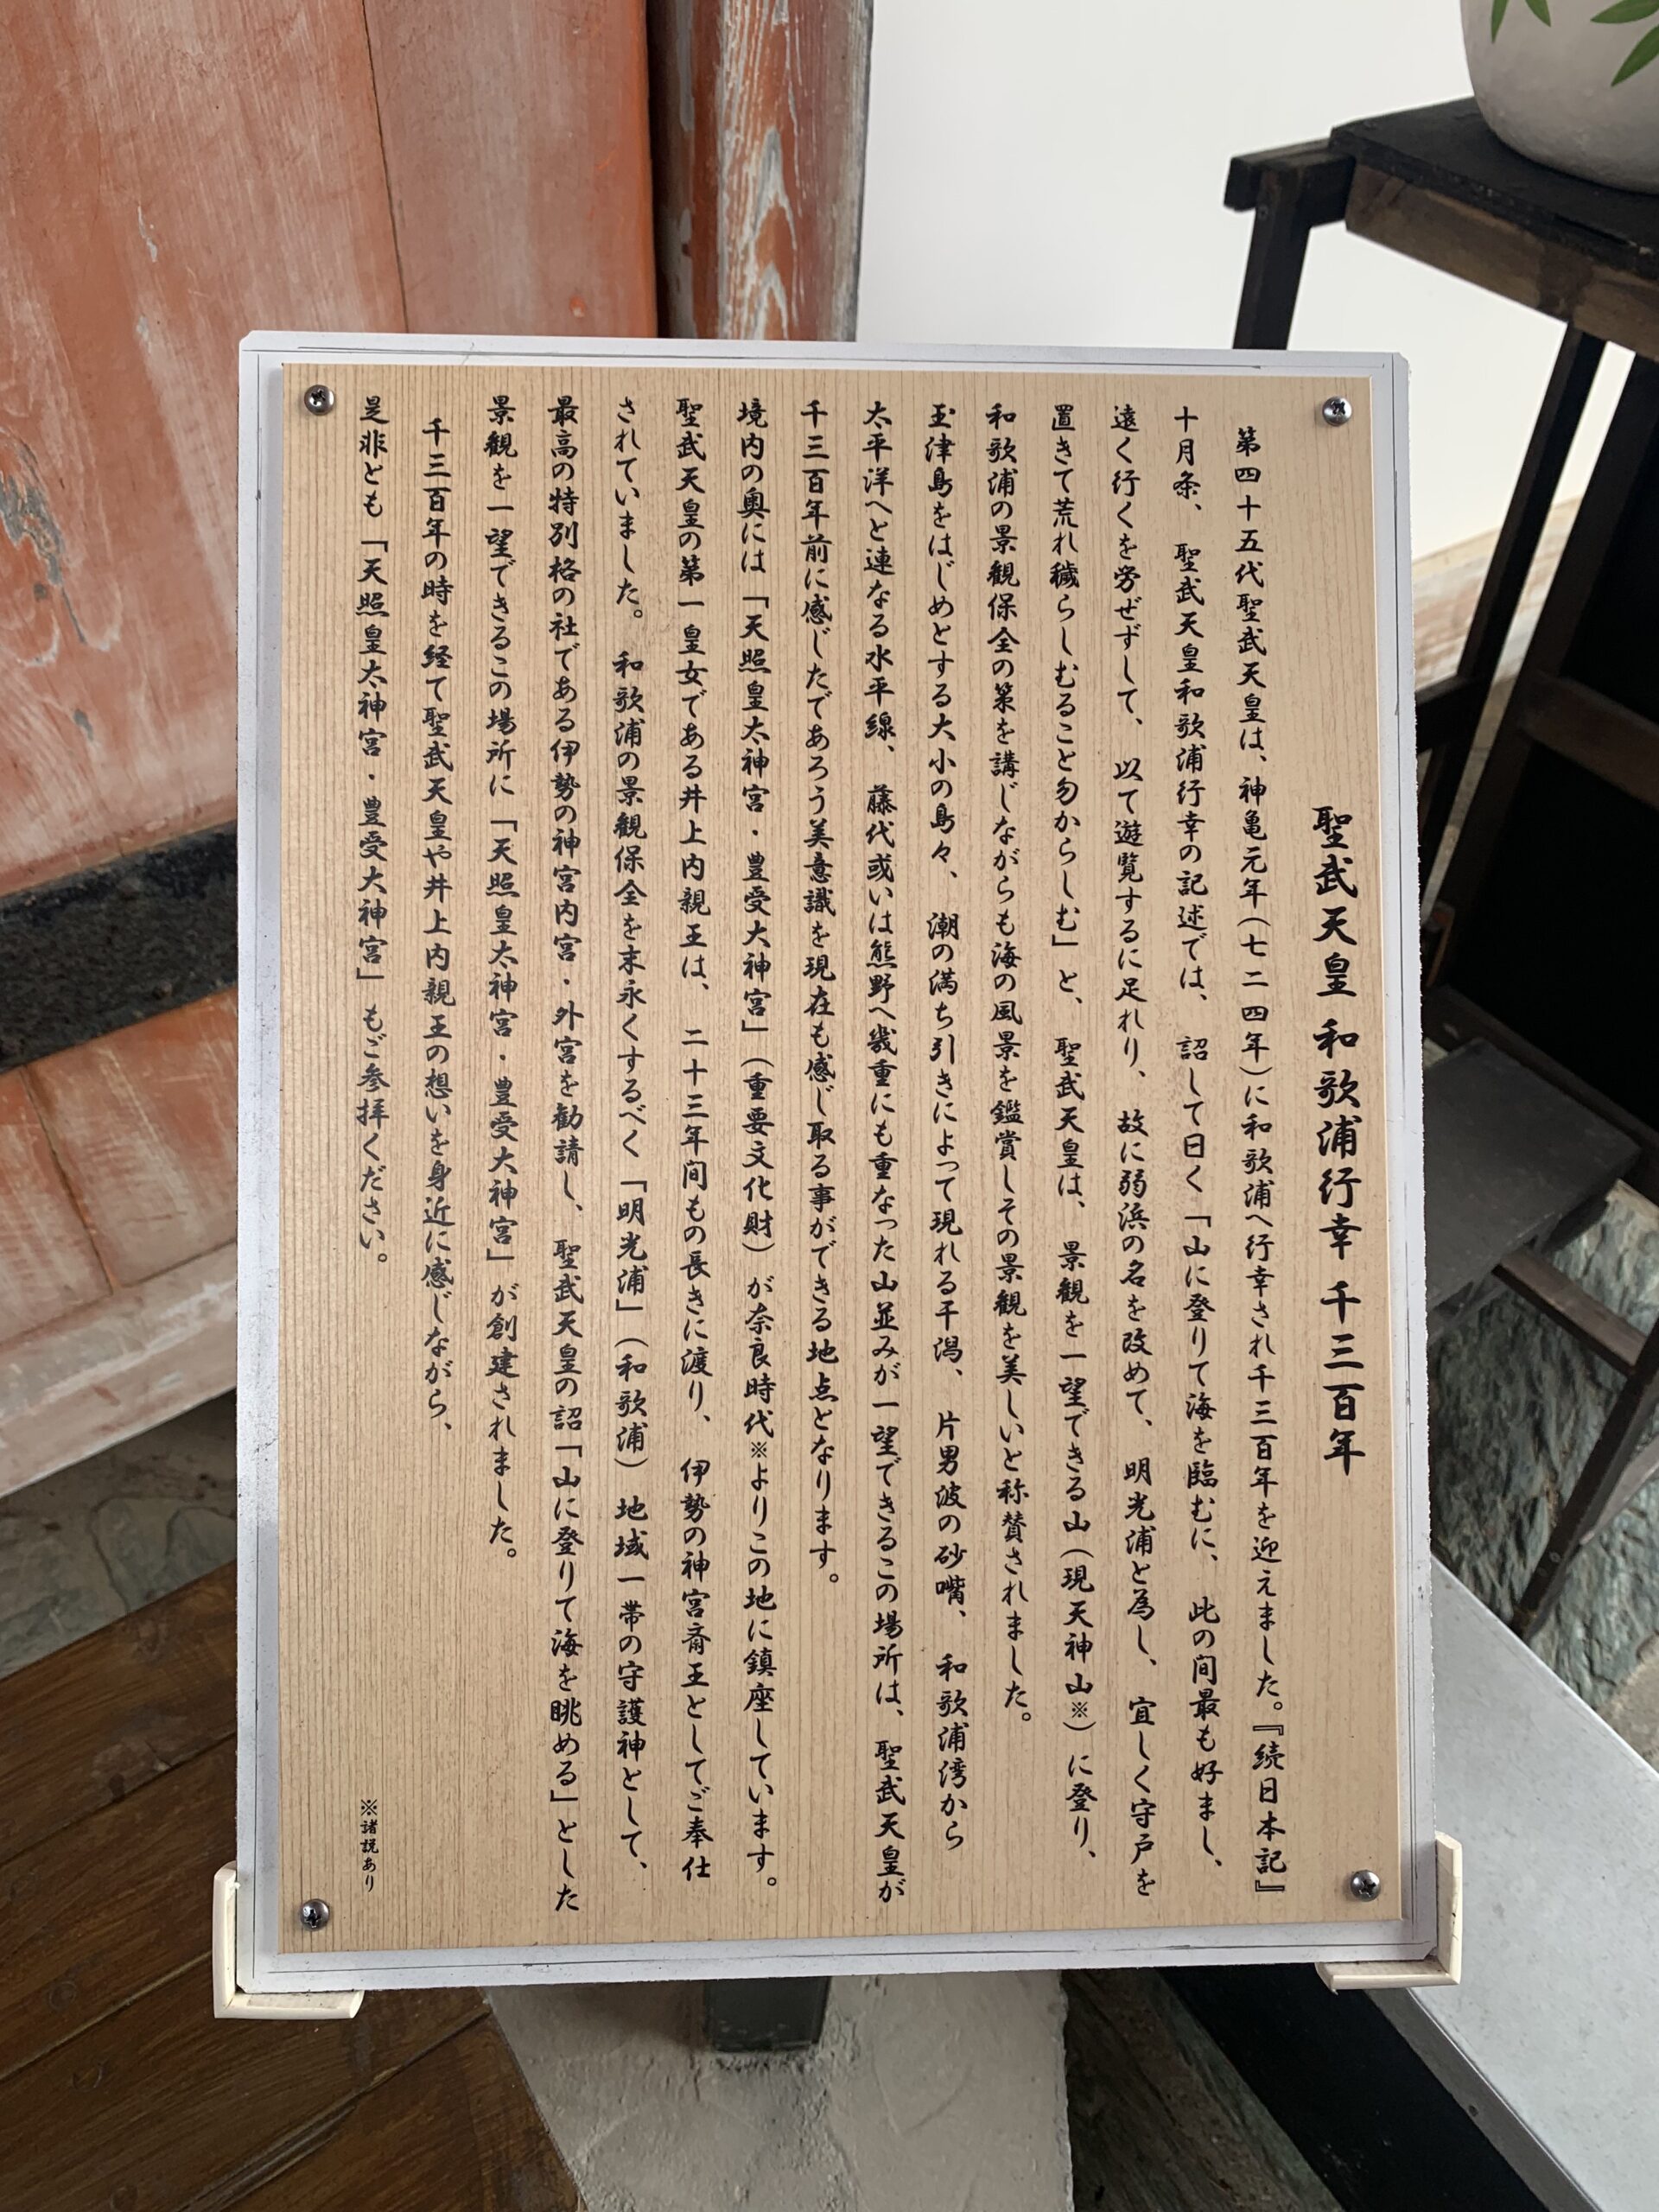 聖武天皇 和歌浦行幸 千三百年
第四十五代聖武天皇は、神亀元年（七二四年）に和歌浦へ行幸され千三百年を迎えました。『続日本記』
十月条、聖武天皇和歌浦行幸の記述では、詔して曰く「山に登りて海を臨むに、此の間最も好まし、
遠く行くを労ぜずして、以て遊覧するに足れり、故に弱浜の名を改めて、明光浦と為し、宜しく守戸を
置きて荒れ穢らしむること勿からしむ」と、聖武天皇は、景観を一望できる山（現天神山※）に登り、
和歌浦の景観保全の策を講じながらも海の風景を鑑賞しその景観を美しいと称賛されました。
玉津島をはじめとする大小の島々、潮の満ち引きによって現れる干潟、片男波の砂嘴、和歌浦湾から
太平洋へと連なる水平線、藤代或いは熊野へ幾重にも重なった山並みが一望できるこの場所は、聖武天皇が
千三百年前に感じたであろう美意識を現在も感じ取る事ができる地点となります。
境内の奥には「天照皇太神宮・豊受大神宮」（重要文化財）が奈良時代※よりこの地に鎮座しています。
聖武天皇の第一皇女である井上内親王は、二十三年間もの長きに渡り、伊勢の神宮斎王としてご奉仕
されていました。和歌浦の景観保全を末永くするべく「明光浦」（和歌浦）地域一帯の守護神として、
最高の特別格の社である伊勢の神宮内宮・外宮を勧請し、聖武天皇の詔「山に登りて海を眺める」とした
景観を一望できるこの場所に「天照皇太神宮・豊受大神宮」が創建されました。
千三百年の時を経て聖武天皇や井上内親王の想いを身近に感じながら、
是非とも「天照皇太神宮・豊受大神宮」もご参拝ください。
※諸説あり